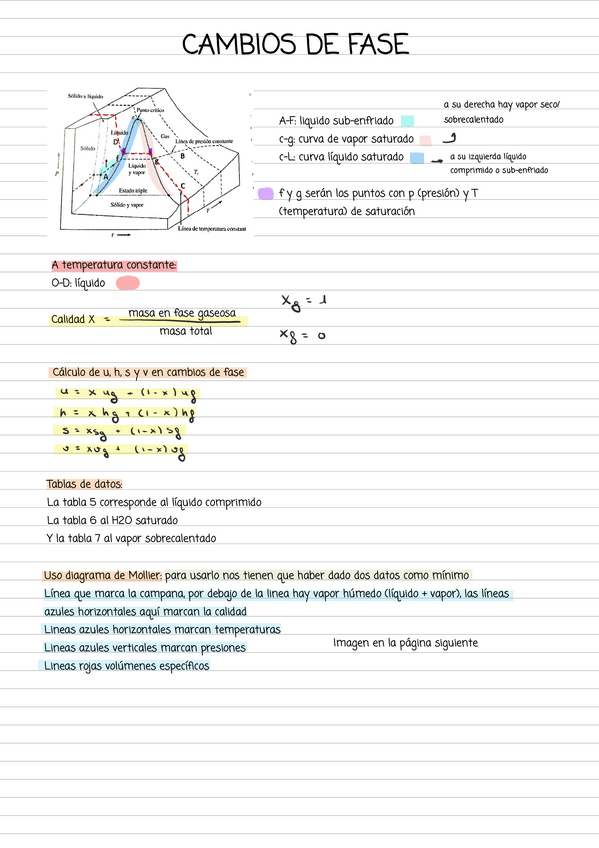 CAMBIOS DE FASE
Sólido y líquido
Punto crítico
Líquido
D
Gas
Línea de presión constante
Sólido
f
g
B
A
Líquido
y vapor
T
Estado triple
C
Sólido y vapor
P
T
v
Línea de temperatura constant
a su derecha hay vapor seco/
sobrecalentado
A-F: liquido sub-enfriado
c-g: curva de vapor saturado
c-L: curva líquido saturado
a su izquierda líquido
comprimido o sub-enfriado
f y g serán los puntos con p (presión) y T
(temperatura) de saturación
A temperatura constante:
O-D: líquido
Calidad X = masa en fase gaseosa
masa total
xg = 1
xf = 0
Cálculo de u, h, s y v en cambios de fase
u = x ug + (1-x) uf
h = x hg + (1-x) hf
s = xsg + (1-x) sf
v = xvg + (1-x) vf
Tablas de datos:
La tabla 5 corresponde al líquido comprimido
La tabla 6 al H2O saturado
Y la tabla 7 al vapor sobrecalentado
Uso diagrama de Mollier: para usarlo nos tienen que haber dado dos datos como mínimo
Línea que marca la campana, por debajo de la linea hay vapor húmedo (líquido + vapor), las líneas
azules horizontales aquí marcan la calidad
Lineas azules horizontales marcan temperaturas
Lineas azules verticales marcan presiones
Imagen en la página siguiente
Lineas rojas volúmenes específicos